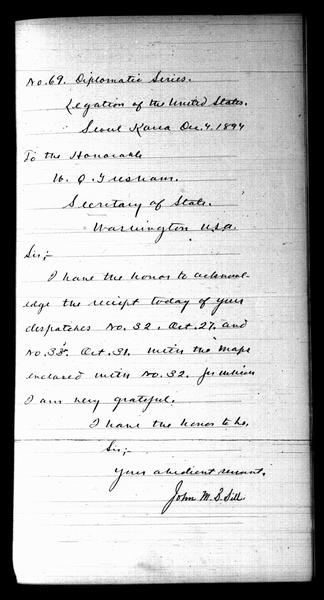 No. 69. Diplomatic Series.
Legation of the United States.
Seoul Korea Dec. 4. 1894
To the Honorable
W. Q. Gresham.
Secretary of State.
Washington U.S.A.
Sir;-
I have the honor to acknowl-
edge the reciept today of your
despatches No. 32. Oct. 27. and
No. 33. Oct. 31. with the maps
enclosed with No. 32. for which
I am very grateful.
I have the honor to be,
Sir;
Your obedient servant.
John M. B. Sill